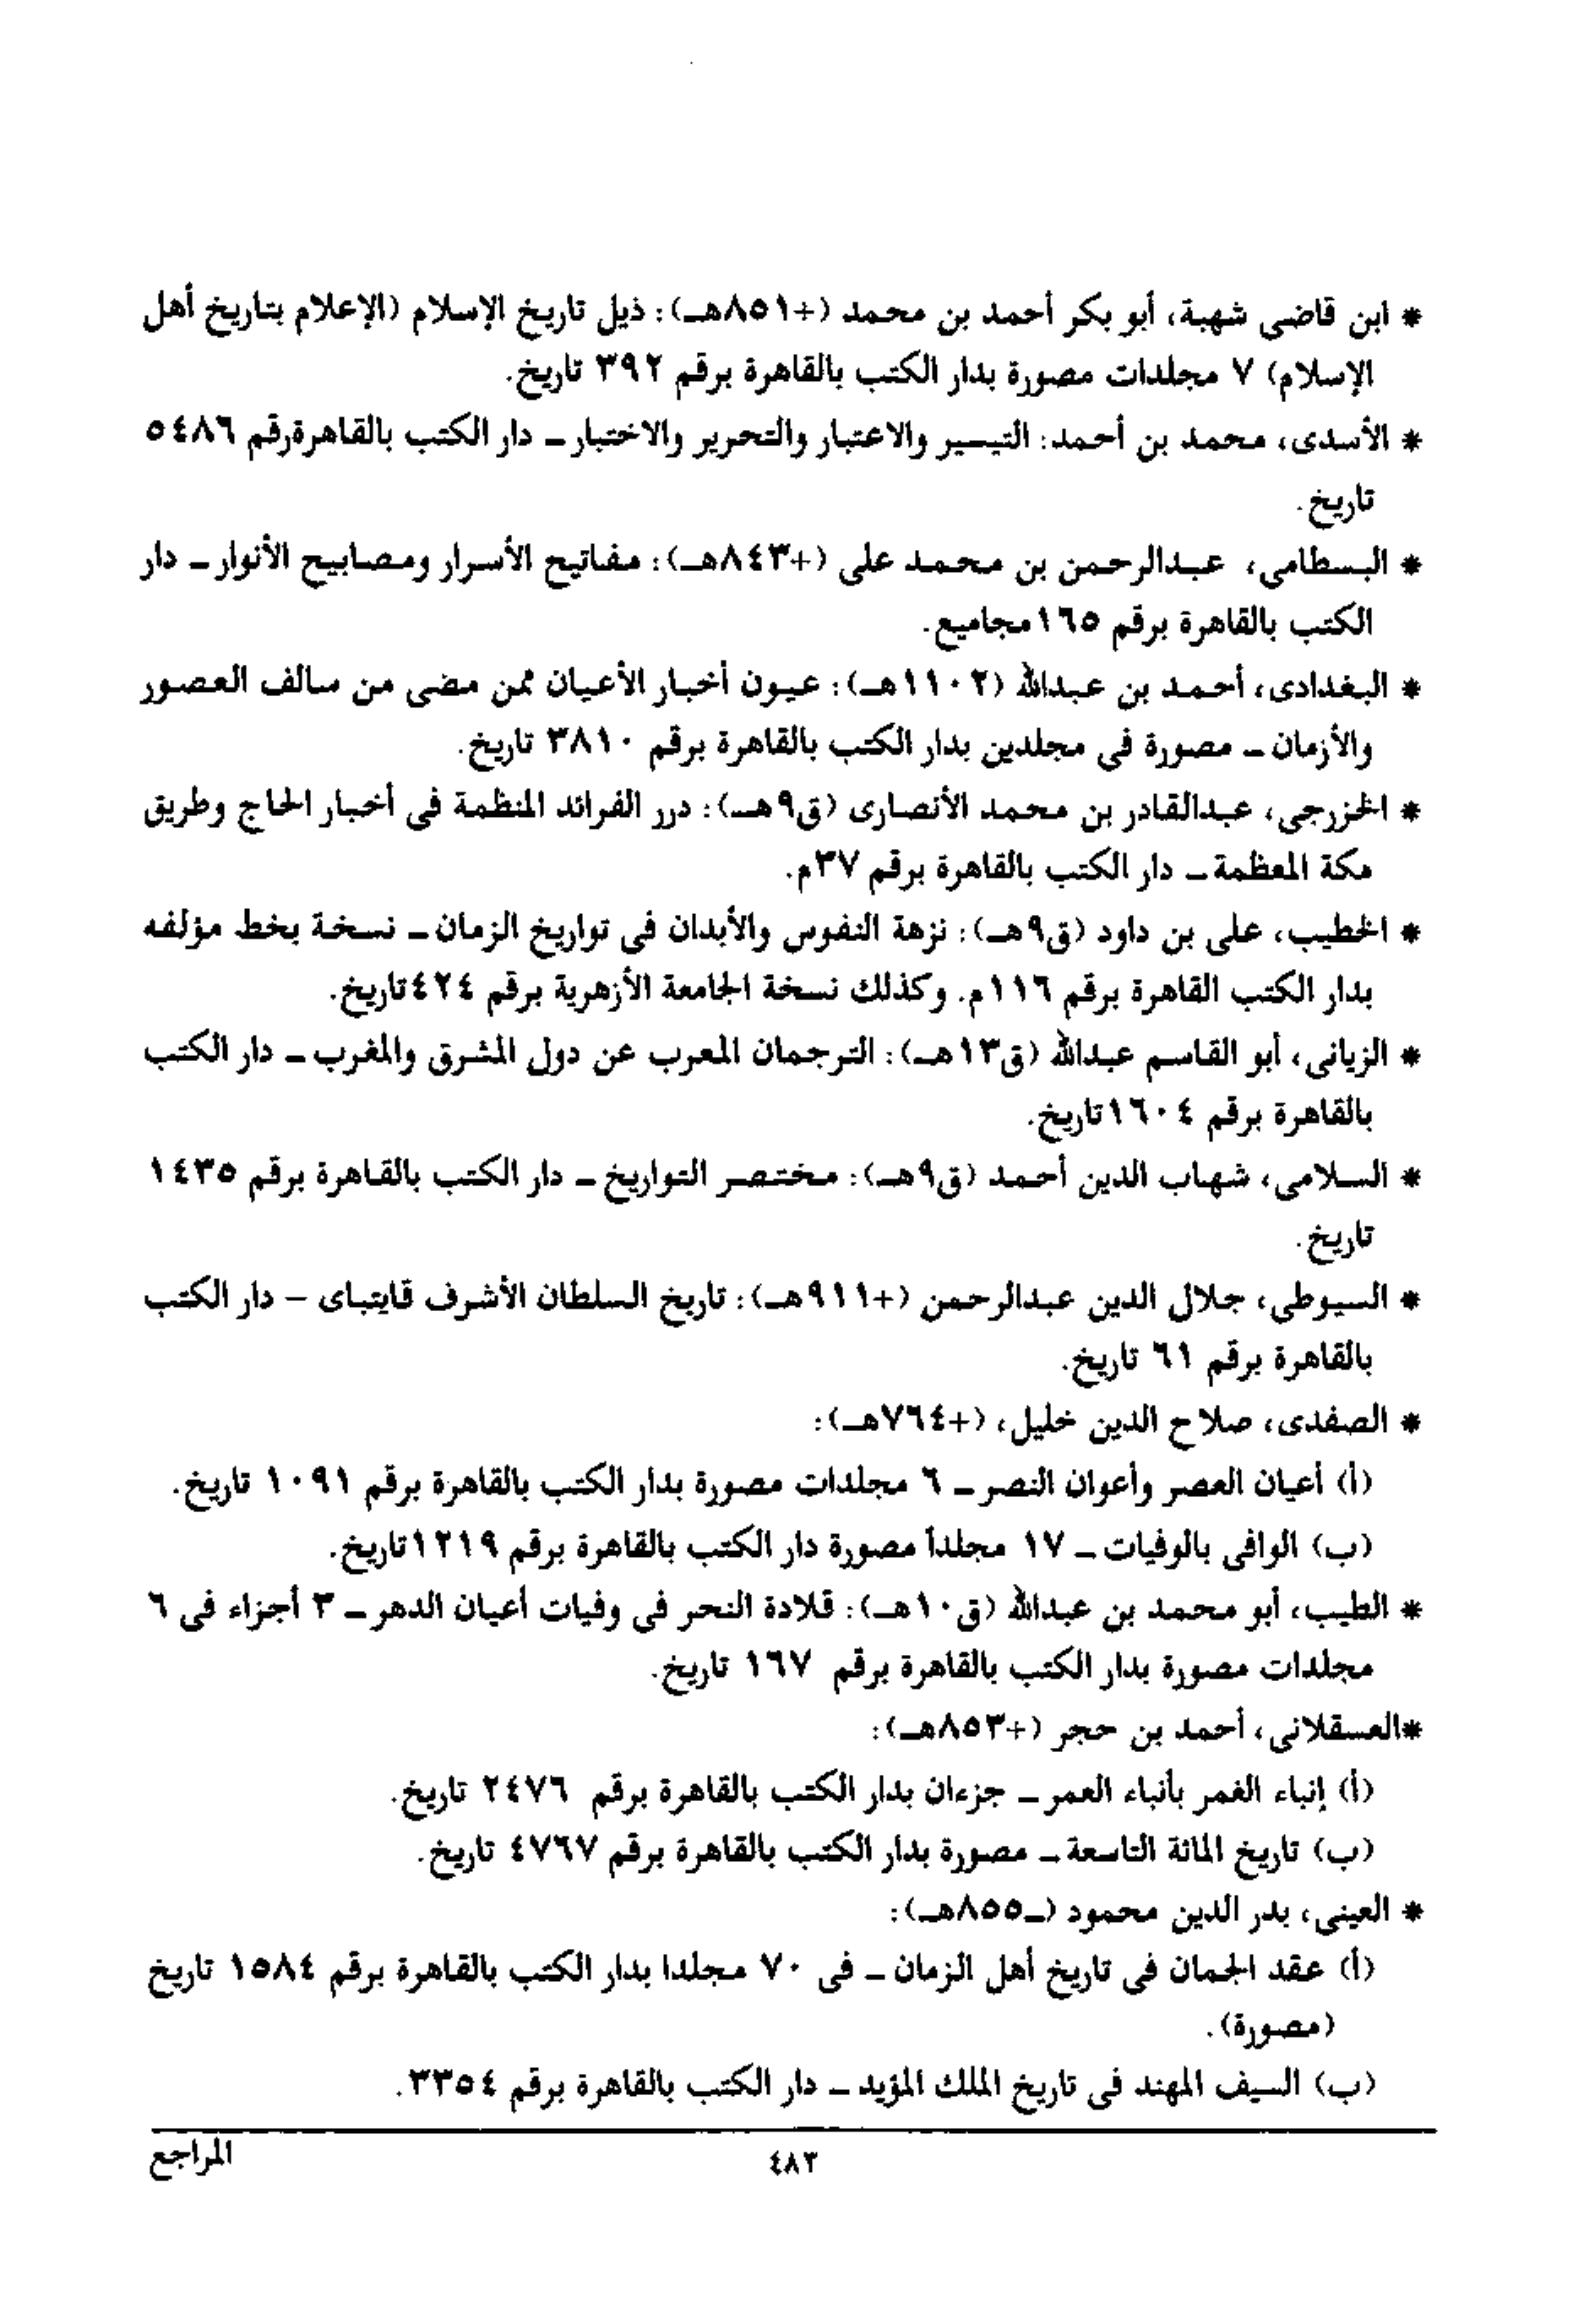 * ابن قاضى شهبة، أبو بكر أحمد بن محمد (+٨٥١هـ): ذيل تاريخ الإسلام (الإعلام بتاريخ أهل
الإسلام) ٧ مجلدات مصورة بدار الكتب بالقاهرة برقم ٣٩٢ تاريخ.
* الأسدى، محمد بن أحمد: التيسير والاعتبار والتحرير والاختبار – دار الكتب بالقاهرةرقم ٥٤٨٦
تاريخ.
* البسطامى، عبدالرحمن بن محمد على (+٨٤٣هـ): مفاتيح الأسرار ومصابيح الأنوار – دار
الكتب بالقاهرة برقم ١٦٥مجاميع.
* البغدادى، أحمد بن عبدالله (١١٠٢هـ): عيون أخبار الأعيان ممن مضى من سالف العصور
والأزمان – مصورة فى مجلدين بدار الكتب بالقاهرة برقم ٣٨١٠ تاريخ.
* الخزرجى، عبدالقادر بن محمد الأنصارى (ق٩هـ): درر الفرائد المنظمة فى أخبار الحاج وطريق
مكة المعظمة – دار الكتب بالقاهرة برقم ٣٧م.
* الخطيب، على بن داود (ق٩هـ): نزهة النفوس والأبدان فى تواريخ الزمان – نسخة بخط مؤلفه
بدار الكتب القاهرة برقم ١١٦م. وكذلك نسخة الجامعة الأزهرية برقم ٤٢٤تاريخ.
* الزيانى، أبو القاسم عبدالله (ق١٣هـ): الترجمان المعرب عن دول المشرق والمغرب – دار الكتب
بالقاهرة برقم ١٦٠٤تاريخ.
* السلامى، شهاب الدين أحمد (ق٩هـ): مختصر التواريخ – دار الكتب بالقاهرة برقم ١٤٣٥
تاريخ.
* السيوطى، جلال الدين عبدالرحمن (+٩١١هـ): تاريخ السلطان الأشرف قايتباى – دار الكتب
بالقاهرة برقم ٦١ تاريخ.
* الصفدى، صلاح الدين خليل، (+٧٦٤هـ):
(أ) أعيان العصر وأعوان النصر – ٦ مجلدات مصورة بدار الكتب بالقاهرة برقم ١٠٩١ تاريخ.
(ب) الوافى بالوفيات – ١٧ مجلداً مصورة دار الكتب بالقاهرة برقم ١٢١٩تاريخ.
* الطيب، أبو محمد بن عبدالله (ق١٠هـ): قلادة النحر فى وفيات أعيان الدهر – ٣ أجزاء فى ٦
مجلدات مصورة بدار الكتب بالقاهرة برقم ١٦٧ تاريخ.
*العسقلانى، أحمد بن حجر (+٨٥٣هـ):
(أ) إنباء الغمر بأنباء العمر – جزءان بدار الكتب بالقاهرة برقم ٢٤٧٦ تاريخ.
(ب) تاريخ المائة التاسعة – مصورة بدار الكتب بالقاهرة برقم ٤٧٦٧ تاريخ.
* العينى، بدر الدين محمود (–٨٥٥هـ):
(أ) عقد الجمان فى تاريخ أهل الزمان – فى ٧٠ مجلدا بدار الكتب بالقاهرة برقم ١٥٨٤ تاريخ
(مصورة).
(ب) السيف المهند فى تاريخ الملك المؤيد – دار الكتب بالقاهرة برقم ٣٣٥٤.
٤٨٣
المراجع